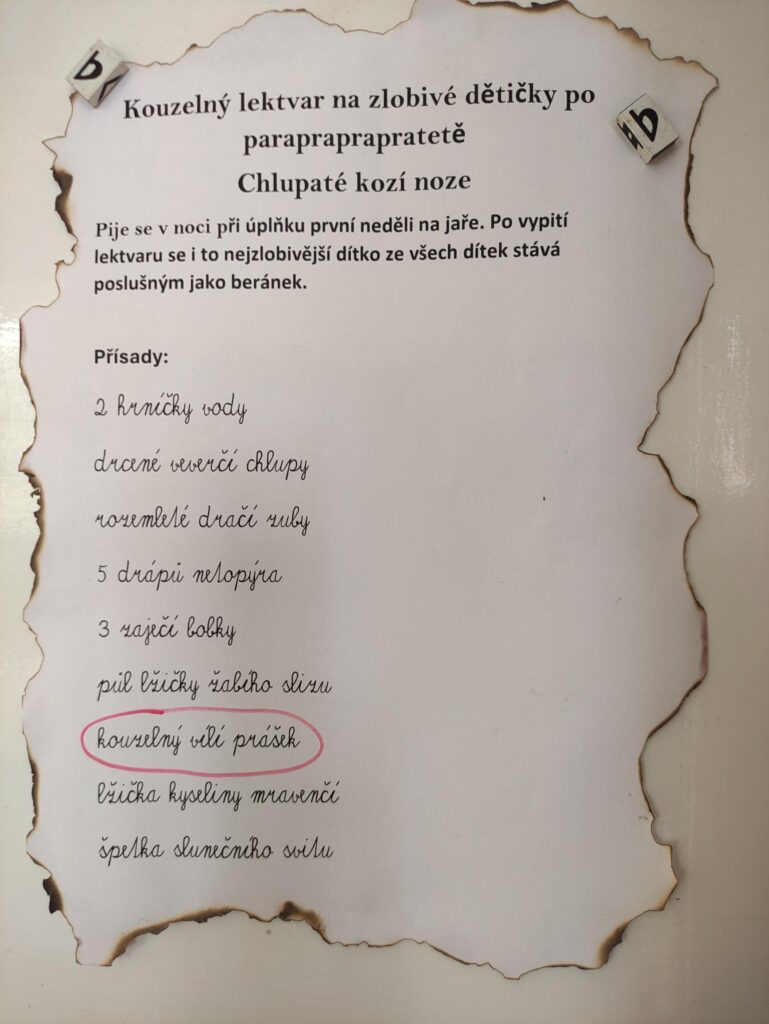 b
b
Kouzelný lektvar na zlobivé dětičky po
parapraprapratetě
Chlupaté kozí noze
Pije se v noci při úplňku první neděli na jaře. Po vypití
lektvaru se i to nejzlobivější dítko ze všech dítek stává
poslušným jako beránek.
Přísady:
2 hrníčky vody
drcené veverčí chlupy
rozemleté dračí zuby
5 drápů netopýra
3 zaječí bobky
půl lžičky žabího slizu
kouzelný vílí prášek
lžička kyseliny mravenčí
špetka slunečního svitu